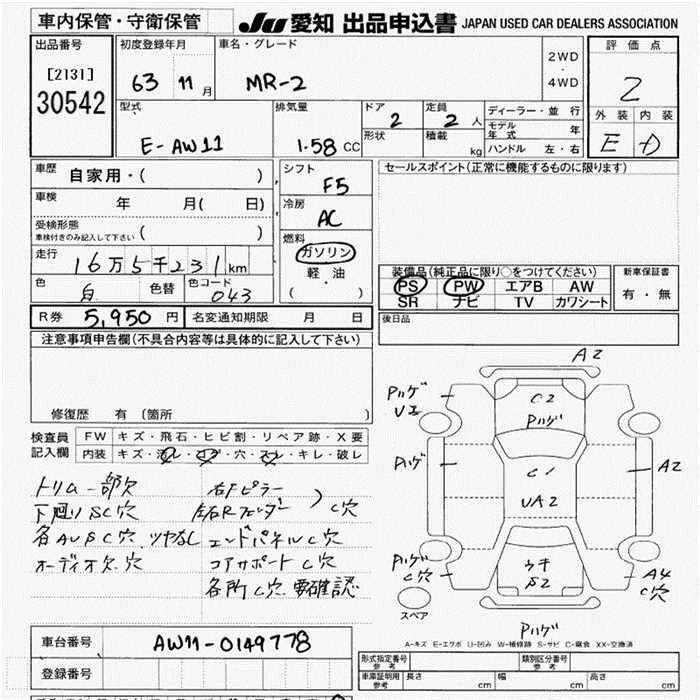 車内保管・守衛保管 JU 愛知 出品申込書 JAPAN USED CAR DEALERS ASSOCIATION
出品番号 初度登録年月 車名・グレード 評価点
[2131] 63 11月 MR-2 2WD・4WD 2
30542
型式 排気量 ドア 定員 ディーラー・並行 外装 内装
E-AW11 1.58 CC 2 2人 モデル年式 年 E D
形状 積載 kg ハンドル 左・右
車歴 自家用・( ) シフト F5 セールスポイント(正常に機能するものに限ります)
車検 年 月( 日) 冷房 AC
受検形態
車検付きのみ記入して下さい ( )
燃料 ガソリン
軽・油
( )
走行 16万5千231km
装備品(純正品に限り○をつけてください) 新車保証書
PS PW エアB AW 有・無
SR ナビ TV カワシート
色 白 色替 色コード 043
R券 5,950円 名変通知期限 月 日 後日品
注意事項申告欄(不具合内容等は具体的に記入して下さい)
修復歴 有 (箇所 )
検査員 FW キズ・飛石・ヒビ割・リペア跡・X要
記入欄 内装 キズ・汚レ・コゲ・穴・スレ・キレ・破レ
トリム一部欠 右Fピラー
下廻りSC穴 左右Rフェンダー C穴
各AUSC穴 ツヤなし エンドパネルC穴
オーディオ欠.穴 コアサポートC穴
各所C穴 要確認
A2
Pハゲ
C2
Pハゲ
Pハゲ C1 A2
UA2
Pハゲ
C穴
ウキ
S2
A4
C穴
スペア
Pハゲ
A-キズ E-エクボ U-凹み W-補修跡 S-サビ C-腐食 XX-交換済
車台番号 AW11-0149778
登録番号
型式指定番号 参考 類別区分番号 参考
車庫証明用 参考 長さ cm 幅 cm 高さ cm